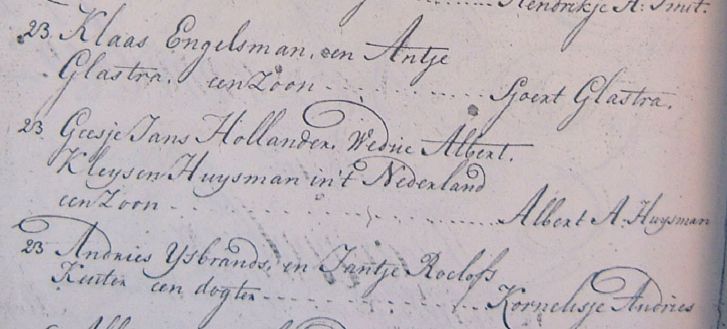 Hendrikje H: Smit.
23 Klaas Engelsman, en Antje
Glastra, een Zoon - - - - - - - Sjoert Glastra.
23 Geesje Jans Hollander, Wedue Albert.
Kleysen Huysman in't Nederland
een Zoon - - - - - - - Albert A: Huysman
23 Andries Ysbrands, en Jantje Roelofs
Keuter een dogter - - - - - - - Kornelisje Andries